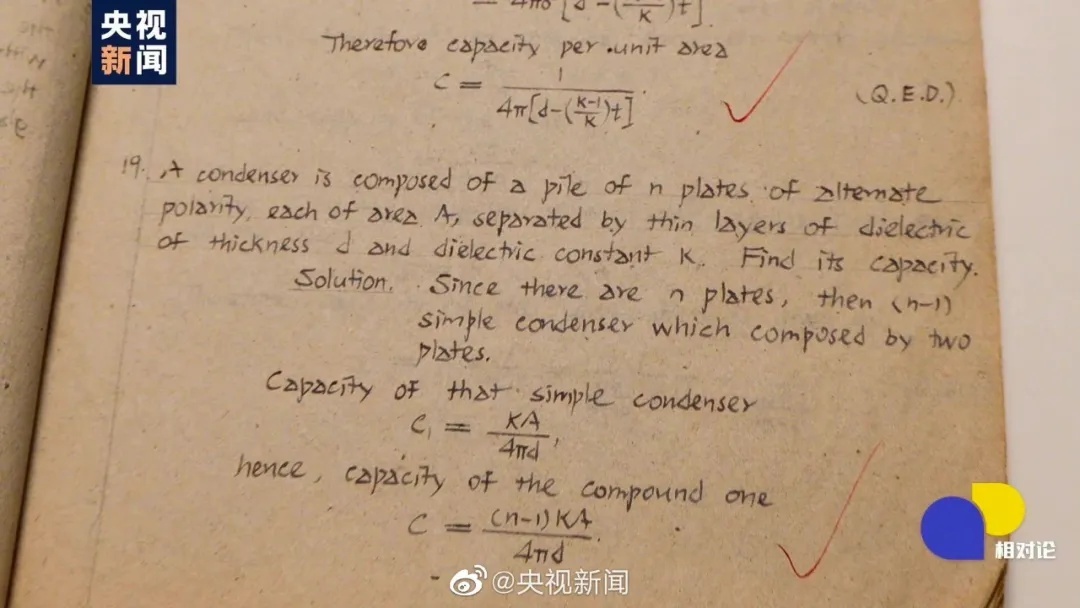 央视
新闻
= 4πσ [d-(
K)t]
Therefore capacity per unit area
C = 1/4π[d-(K-1/K)t]
(Q.E.D.)
19. A condenser is composed of a pile of n plates of alternate
polarity, each of area A, separated by thin layers of dielectric
of thickness d and dielectric constant K. Find its capacity.
Solution. Since there are n plates, then (n-1)
simple condenser which composed by two
plates.
Capacity of that simple condenser
C₁ = KA/4πd,
hence, capacity of the compound one
C = (n-1)KA/4πd.
相对论
@央视新闻